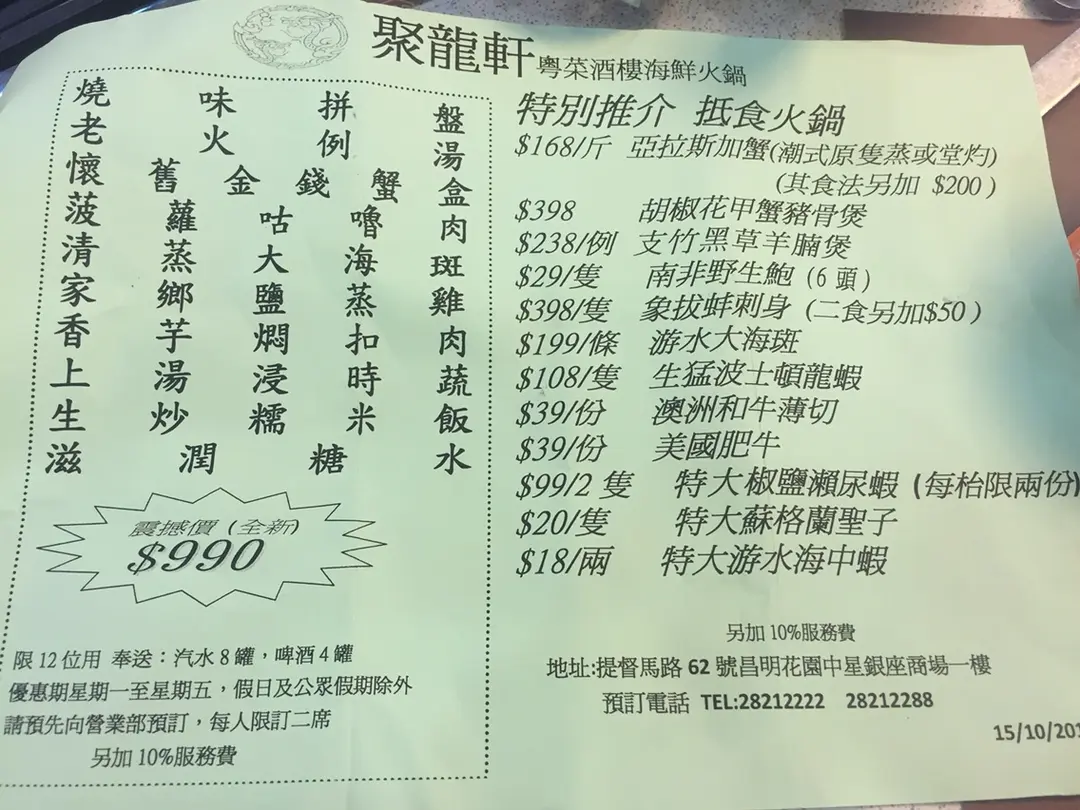 聚龍軒粵菜酒樓海鮮火鍋
燒味拼盤
老火例湯
懷舊金錢蟹盒
菠蘿咕嚕肉
清蒸大海斑
家鄉鹽蒸雞
香芋燜扣肉
上湯浸時蔬
生炒糯米飯
滋潤糖水
震撼價(全新)
$990
限12位用 奉送：汽水8罐，啤酒4罐
優惠期星期一至星期五，假日及公眾假期除外
請預先向營業部預訂，每人限訂二席
另加10%服務費
特別推介 抵食火鍋
$168/斤 亞拉斯加蟹(潮式原隻蒸或堂灼)
(其食法另加 $200)
$398 胡椒花甲蟹豬骨煲
$238/例 支竹黑草羊腩煲
$29/隻 南非野生鮑 (6頭)
$398/隻 象拔蚌刺身 (二食另加$50)
$199/條 游水大海斑
$108/隻 生猛波士頓龍蝦
$39/份 澳洲和牛薄切
$39/份 美國肥牛
$99/2隻 特大椒鹽瀨尿蝦 (每枱限兩份)
$20/隻 特大蘇格蘭聖子
$18/兩 特大游水海中蝦
另加10%服務費
地址:提督馬路62號昌明花園中星銀座商場一樓
預訂電話 TEL:28212222 28212288
15/10/201